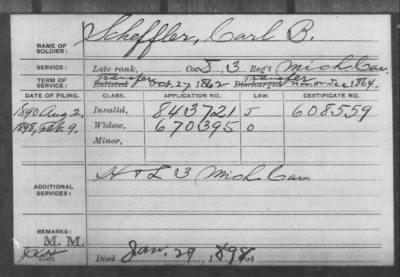 NAME OF SOLDIER: Scheffler, Carl B.
SERVICE: Late rank, Co. J, 3 Reg't Mich Cav.
TERM OF SERVICE: Transfer Transfer
Enlisted Oct. 27, 1862 Discharged Nov or Dec 1864.
DATE OF FILING. CLASS. APPLICATION NO. LAW. CERTIFICATE NO.
1890 Aug 2, Invalid, 843721 J 608559
1898, Feb. 9, Widow, 670395 O
Minor,
ADDITIONAL SERVICES: H & L 3 Mich Cav
REMARKS:
M. M.
Died Jan. 29, 1898, at